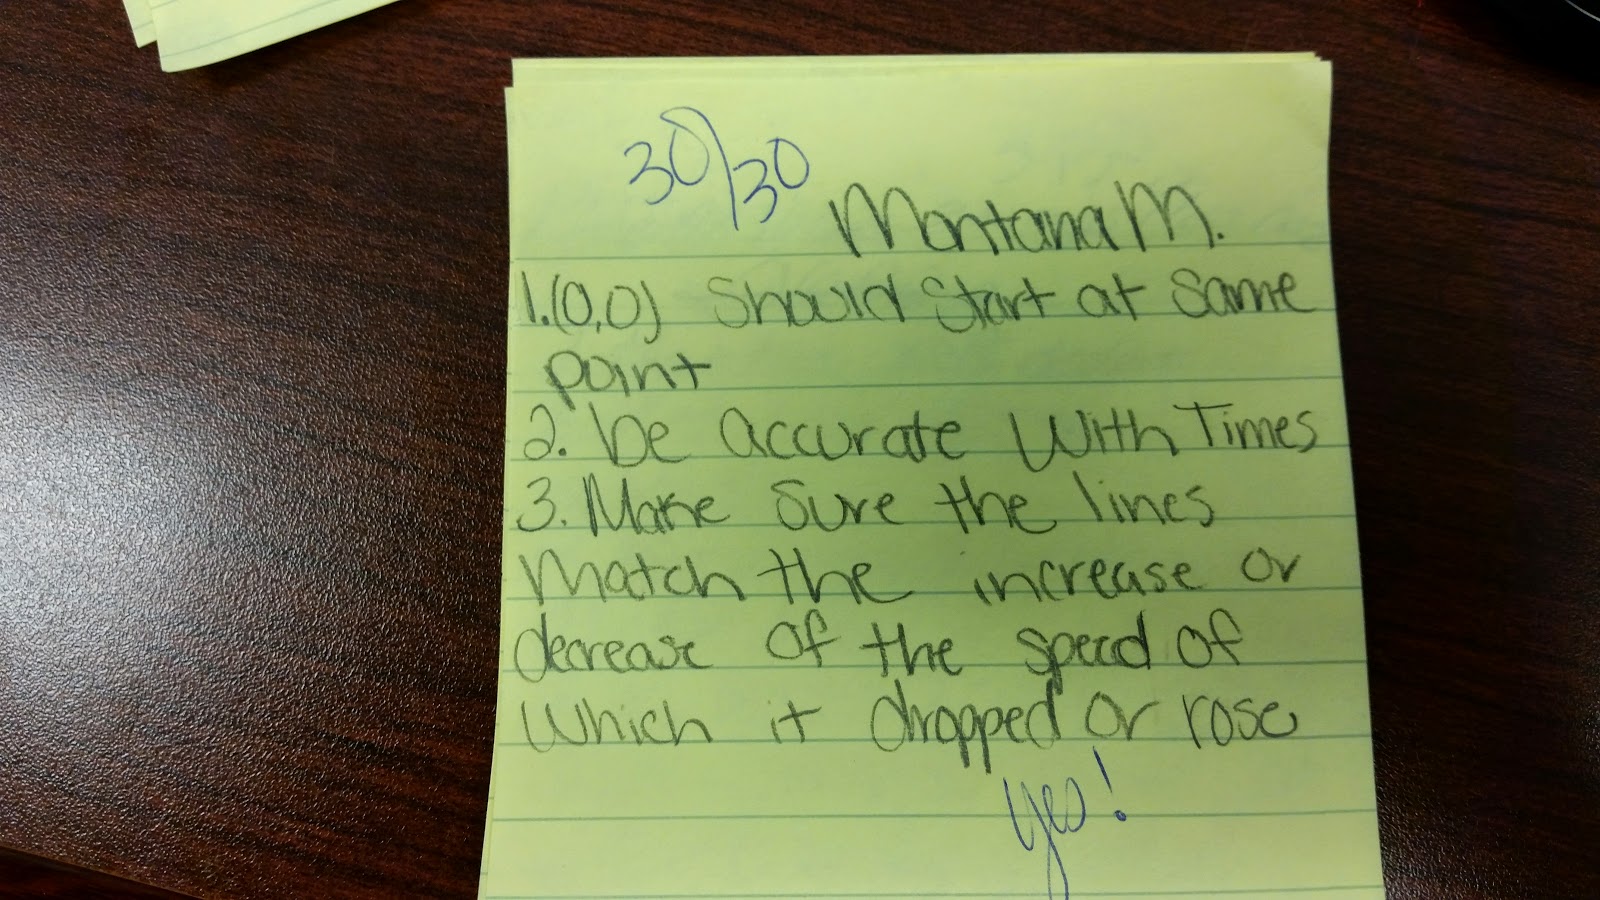 30/30
Montana M.
1. (0,0) Should Start at Same
point
2. be accurate with Times
3. Make Sure the lines
Match the increase or
decrease of the speed of
which it dropped or rose
yes!